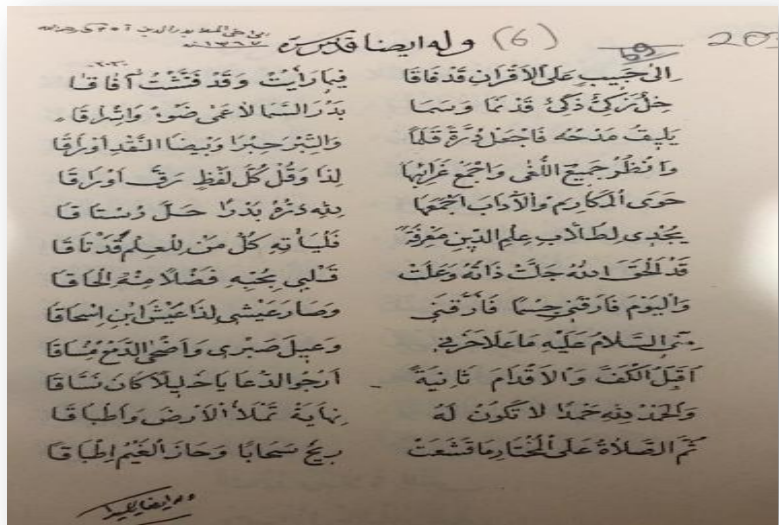 وله ايضا قدس سره (6) 20
١٣٦٧
الى حبيب على الاقران قد فاقا فيما رأيت وقد فتشت آفاقا
خل زكي ذكي قد نما وسما بدر السما لأعمى ضوءه واشراقا
يليق مدحه فاجعل درة قلما والتبر حبرا وبيضا النقد اوراقا
وانظر جميع اللغى واجمع غرائبها لذا وقل كل لفظ رق اوراقا
حوى المكارم والآداب اجمعها لله دره بدرا حل رستاقا
يجدى لطلاب علم الدين معرفة فليأته كل من للعلم قد تاقا
قد الحق الله جلت ذاته وعلت قلبي بحبه فضلا منه الحاقا
واليوم فارقني جسما فأرقني وصار عيشى لذا عيش ابن اسحاقا
منى السلام عليه ما علا حزني وعيل صبرى واضحى الدمع مساقا
اقبل الكف والاقدام ثانية ارجو الدعا يا خليلا كان نساقا
والحمد لله حمدا لا تكون له نهاية تملأ الأرض واطباقا
ثم الصلاة على المختار ما قشعت ريح سحابا وحاز الغيم اطباقا
وله ايضا